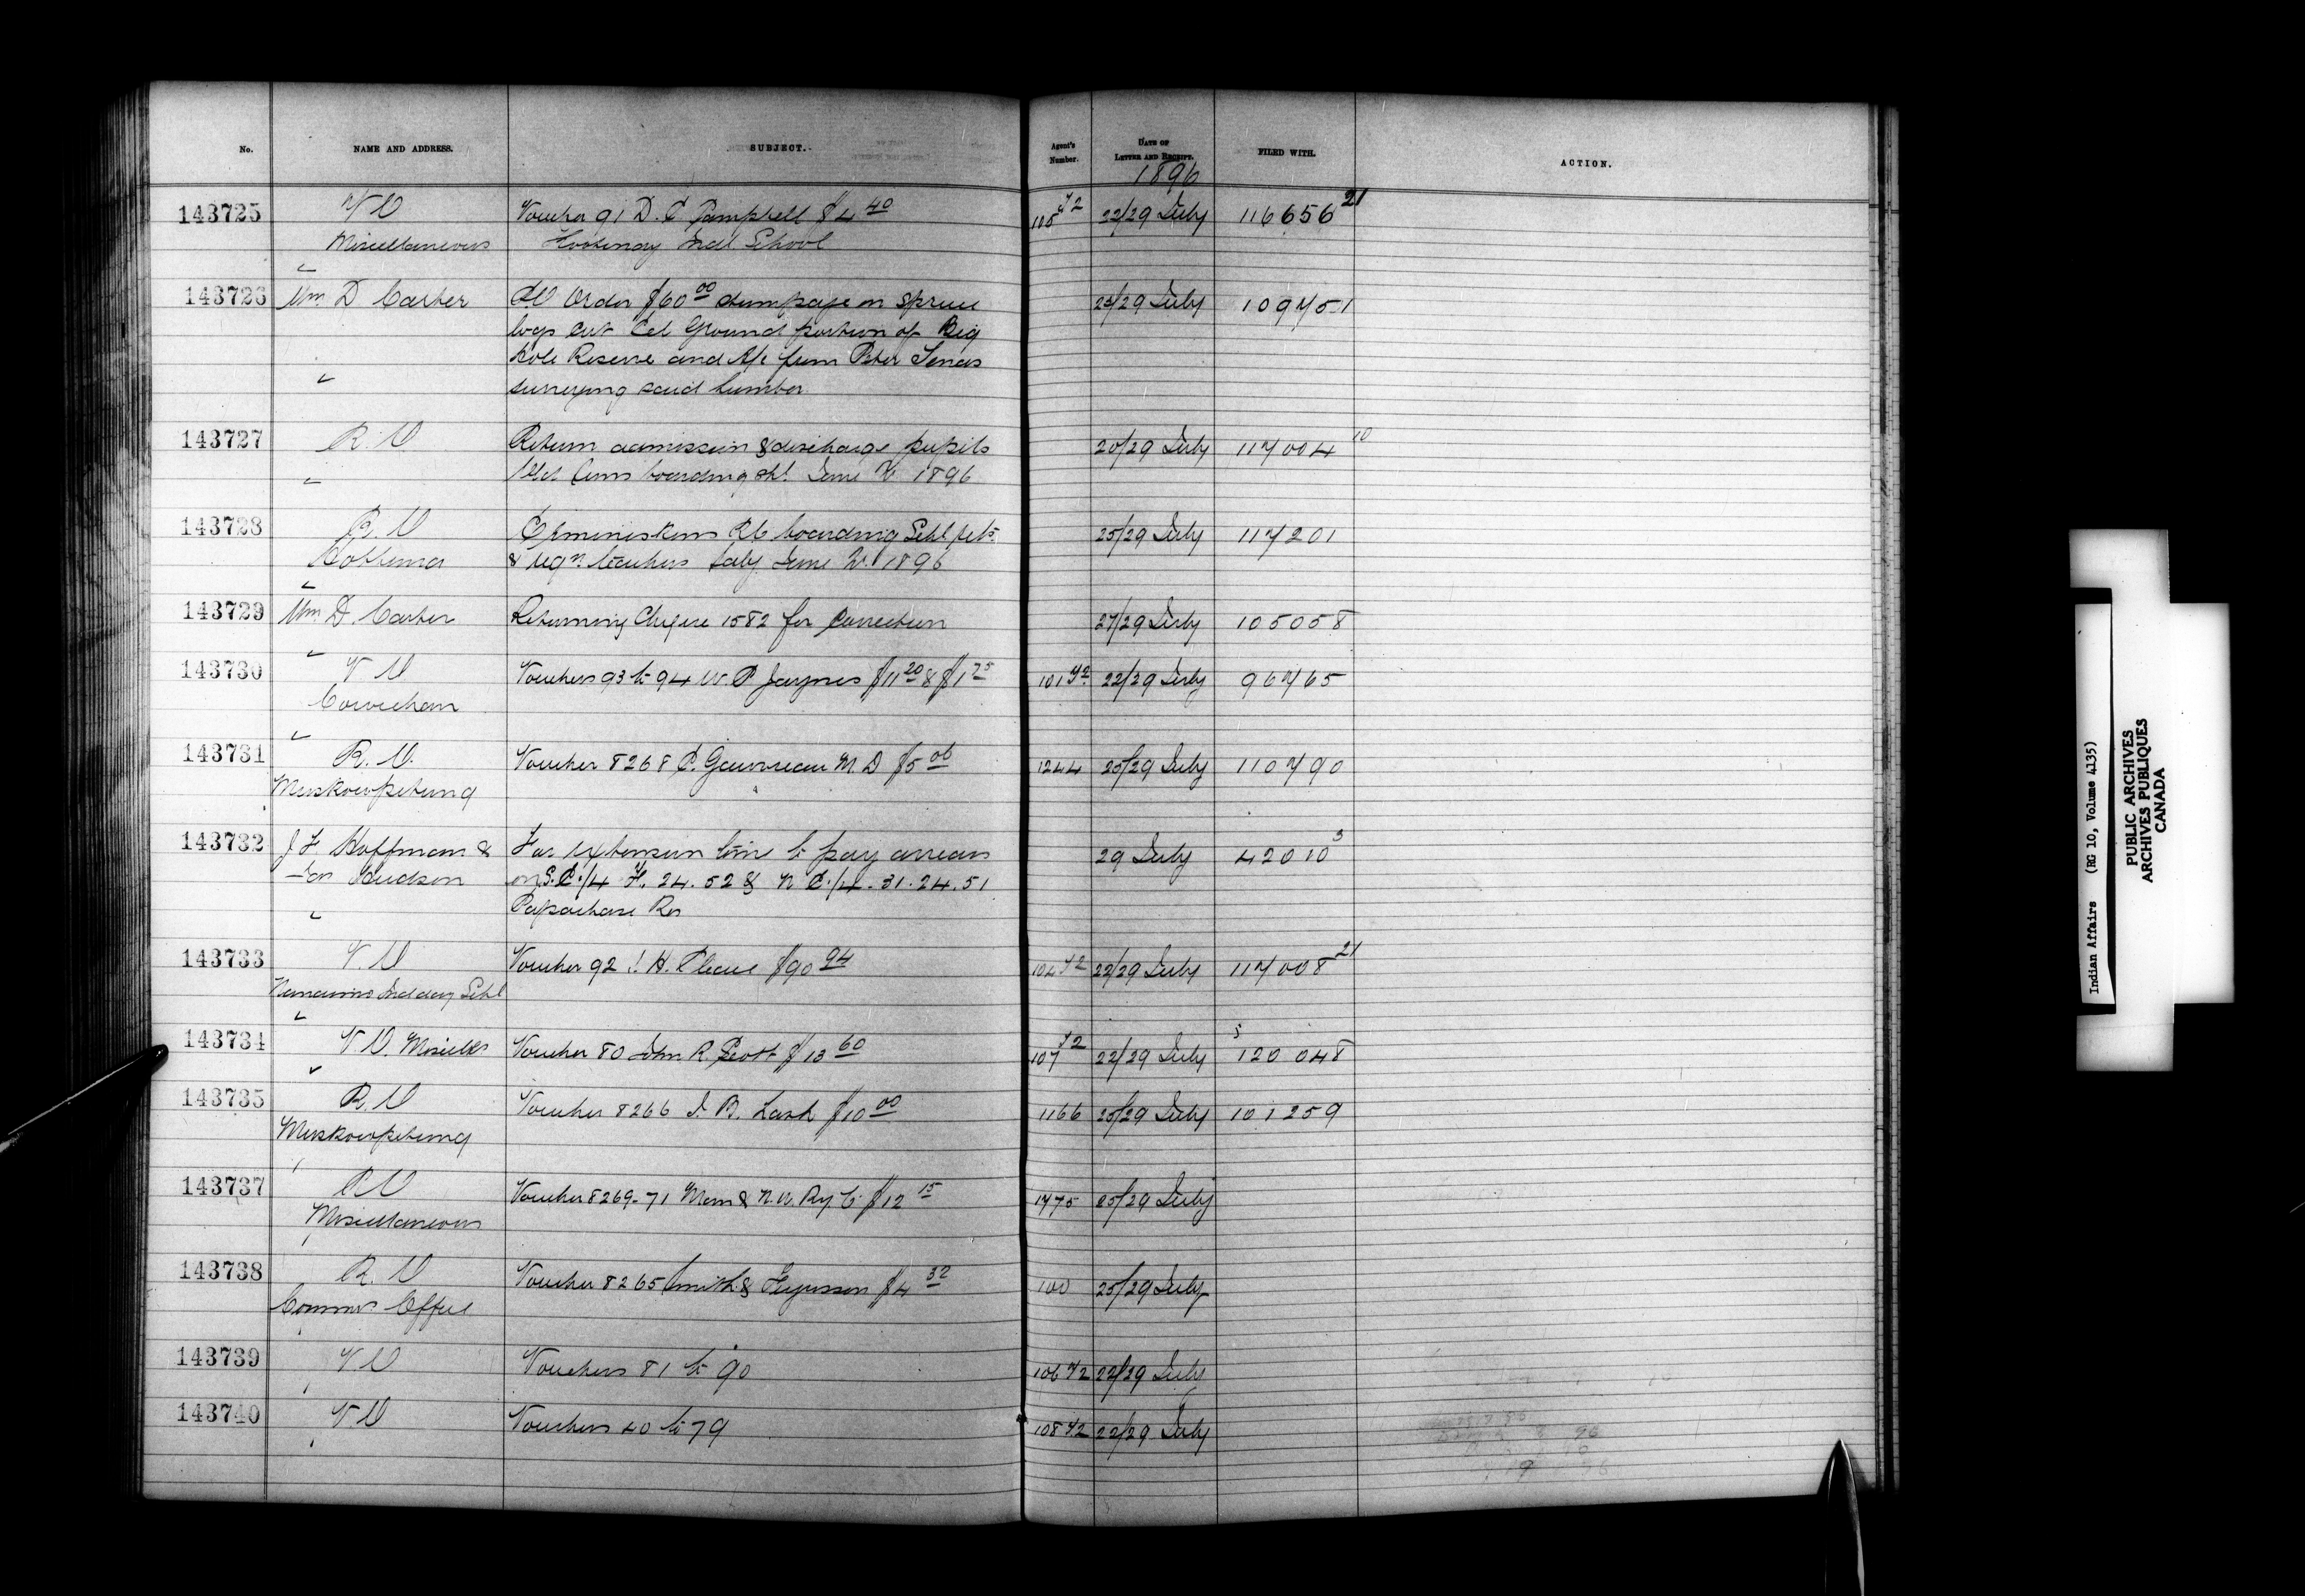 No. NAME AND ADDRESS. SUBJECT. Agent's Number. DATE OF LETTER AND RECEIPT. FILED WITH. ACTION.
1896
143725 V V Voucher 91 D. C Campbell $4 40 105 42 22/29 July 116656 21
Miscellaneous Kootenay Indl School
143726 Wm D Carter Order $60 00 stumpage on spruce 23/29 July 109751
logs cut Eel Ground portion of Big
Hole Reserve and A/c from Peter
surveying said lumber
143727 R. V Return admission & discharge pupils 20/29 July 117004 10
boarding June 1896
143728 R. V Ermineskins RC boarding Schl 25/29 July 117201
Hobbema & teachers June 1896
143729 Wm D. Carter Returning Cheque 1582 for Correction 27/29 July 105058
143730 V V Vouchers 93 to 94 W. P Jaynes $11 20 & $1 75 101 42 22/29 July 96765
Cowichan
143731 R. V. Voucher 8268 C. Gauvreau M. D $5 00 1244 25/29 July 110790
Muskowpetung
143732 J F Hoffman & For extension time to pay arrears 29 July 42010 3
Hudson on S. E. 1/4 24. 52 & N E. 1/4 - 31. 24. 51
Papachase Res
143733 V. V Voucher 92 J. H. Pleace $90 94 104 42 22/29 July 117008 21
Nanaimo Ind day Schl
143734 V V. Miscells Voucher 80 John R Scott $13 60 107 42 22/29 July 120048
143735 R. V Voucher 8266 J. B. Lash $10 00 1166 25/29 July 101259
Muskowpetung
143737 R V Voucher 8269-71 Man & N. W. Ry. Co $12 15 1775 25/29 July
Miscellaneous
143738 R. V Voucher 8265 Smith & Fergusson $4 32 100 25/29 July
Commrs Office
143739 V V Vouchers 81 to 90 106 42 22/29 July
143740 V V Vouchers 40 to 79 108 42 22/29 July
Indian Affairs (RG 10, Volume 4135)
PUBLIC ARCHIVES
ARCHIVES PUBLIQUES
CANADA